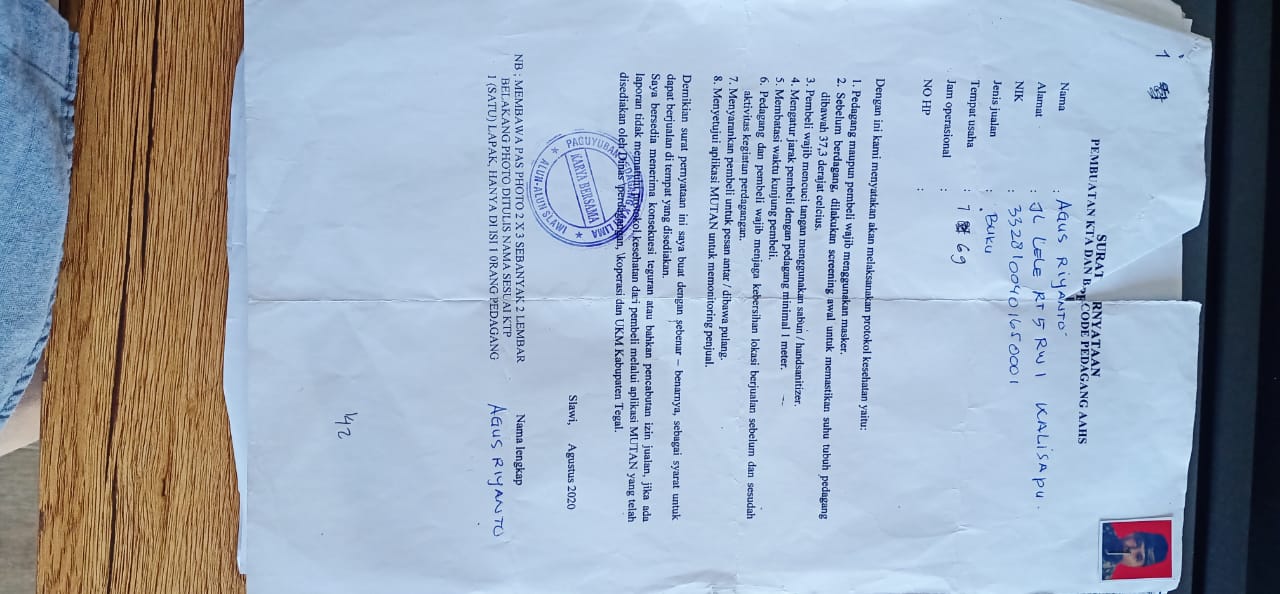 1
SURAT PERNYATAAN
PEMBUATAN KTA DAN CODE PEDAGANG AAHS
Nama : AGUS RIYANTO
Alamat : JL LELE RT 5 RW 1 KALISAPU
NIK : 3328100401650001
Jenis jualan : BUKU
Tempat usaha : 1 69
Jam operasional :
NO HP :
Dengan ini kami menyatakan akan melaksanakan protokol kesehatan yaitu:
1. Pedagang maupun pembeli wajib menggunakan masker.
2. Sebelum berdagang, dilakukan screening awal untuk memastikan suhu tubuh pedagang
dibawah 37,3 derajat celcius.
3. Pembeli wajib mencuci tangan menggunakan sabun / handsanitizer.
4. Mengatur jarak pembeli dengan pedagang minimal 1 meter.
5. Membatasi waktu kunjung pembeli.
6. Pedagang dan pembeli wajib menjaga kebersihan lokasi berjualan sebelum dan sesudah
aktivitas kegistan perdagangan.
7. Menyarankan pembeli untuk pesan antar / dibawa pulang.
8. Menyetujui aplikasi MUTAN untuk memonitoring penjual.
Demikian surat pernyataan ini saya buat dengan sebenar – benarnya, sebagai syarat untuk
dapat berjualan di tempat yang disediakan.
Saya bersedia menerima konsekuesi teguran atau bahkan pencabutan izin jualan, jika ada
laporan tidak mematuhi protokol kesehatan dari pembeli melalui aplikasi MUTAN yang telah
disediakan oleh Dinas Perdagangan, koperasi dan UKM Kabupaten Tegal.
Slawi, Agustus 2020
PAGUYUBAN PEDAGANG KAKI LIMA
KARYA BERSAMA
ALUN-ALUN SLAWI
Nama lengkap
AGUS RIYANTO
NB : MEMBAWA PAS PHOTO 2 X 3 SEBANYAK 2 LEMBAR
BELAKANG PHOTO DITULIS NAMA SESUAI KTP
1 (SATU) LAPAK, HANYA DI ISI 1 0RANG PEDAGANG